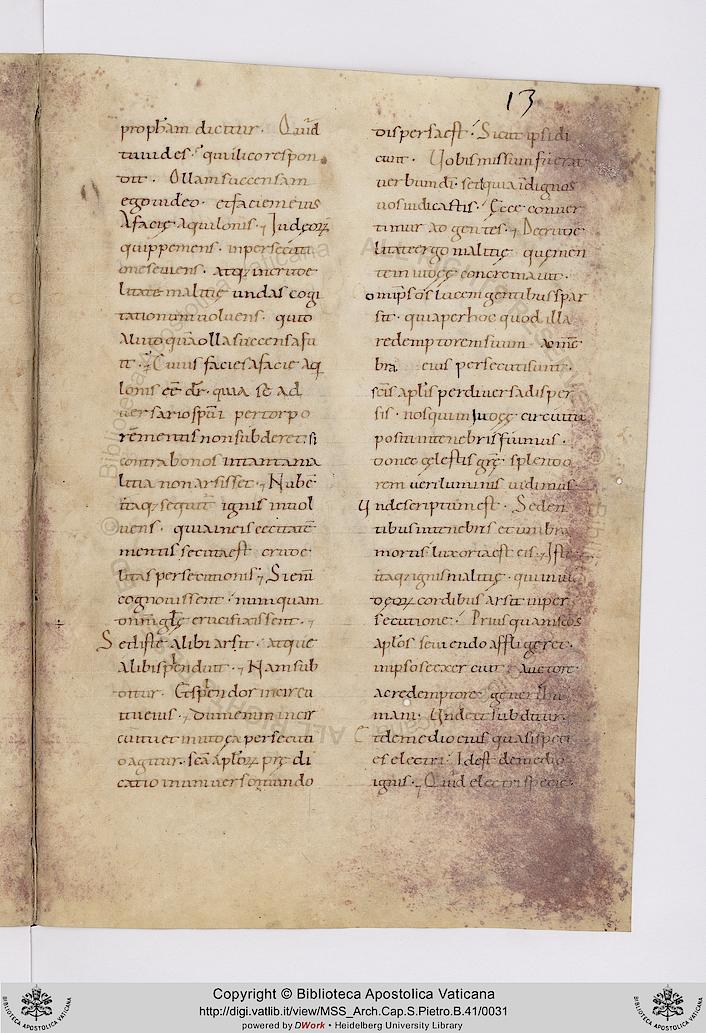 13
propham dicitur. Quid
tu uides. qui ilico respon
dit. Ollam succensam
ego uideo. et faciem eius
A facie aquilonis. Iudeoꝝ
quippe mens. in persecuti
one seuiens. atq; in crude
litate malitię undas cogi
tationum uoluens. quid
aliud quā olla succensa fu
it. Cuius facies a facie aq
lonis eē dr̄. quia se ad
uersario spūi per torpo
rē mentis non subderet. si
contra bonos in tantā ma
litia non arsisset. Nubē
itaq; sequit ignis inuol
uens. quia in eis cecitatē
mentis secuta est crude
litas persecutionis. Si enī
cognouissent. numquam
dn̄m glę crucifixissent.
Sed iste alibi arsit. atque
alibi splenduit. Nam sub
ditur. Et splendor in circu
itu eius. Dum enim in cir
cuitu et in iudęa persecuti
o agitur. scā aploꝝ prę di
catio in uniuerso mundo
dispersa est. Sicut ipsi di
cunt. Uobis missum fuerat
uerbum dī. sed quia īdignos
uos iudicastis. Ecce conuer
timur ad gentes. De crude
litate ergo malitię. quę men
tem iudęę concremauit.
omps̄ ds̄ lucem gentibus spar
sit. quia per hoc quod illa
redemptorem suum. ac mē
bra eius persecuti sunt.
scīs aplīs per diuersa disper
sis. nos qui in iudęę circuitu
positi in tenebris fuimus.
donec cęlestis grę splendo
rem ueri luminis uidimus
Unde scriptum est. Seden
tibus in tenebris et umbra
mortis lux orta est eis. Iste
itaq; ignis malitię. qui in iu
deoꝝ cordibus arsit in per
secutione. Prius quam scōs
aplōs seuiendo affligeret.
in ipso se exercuit auctore.
ac redemptore generis hu
mani. Unde et subditur.
Et de medio eius quasi speci
es electri. Id est de medio
ignis. Quid electri species.
Copyright © Biblioteca Apostolica Vaticana
http://digi.vatlib.it/view/MSS_Arch.Cap.S.Pietro.B.41/0031
powered by DWork • Heidelberg University Library
BIBLIOTECA APOSTOLICA VATICANA
BIBLIOTECA APOSTOLICA VATICANA